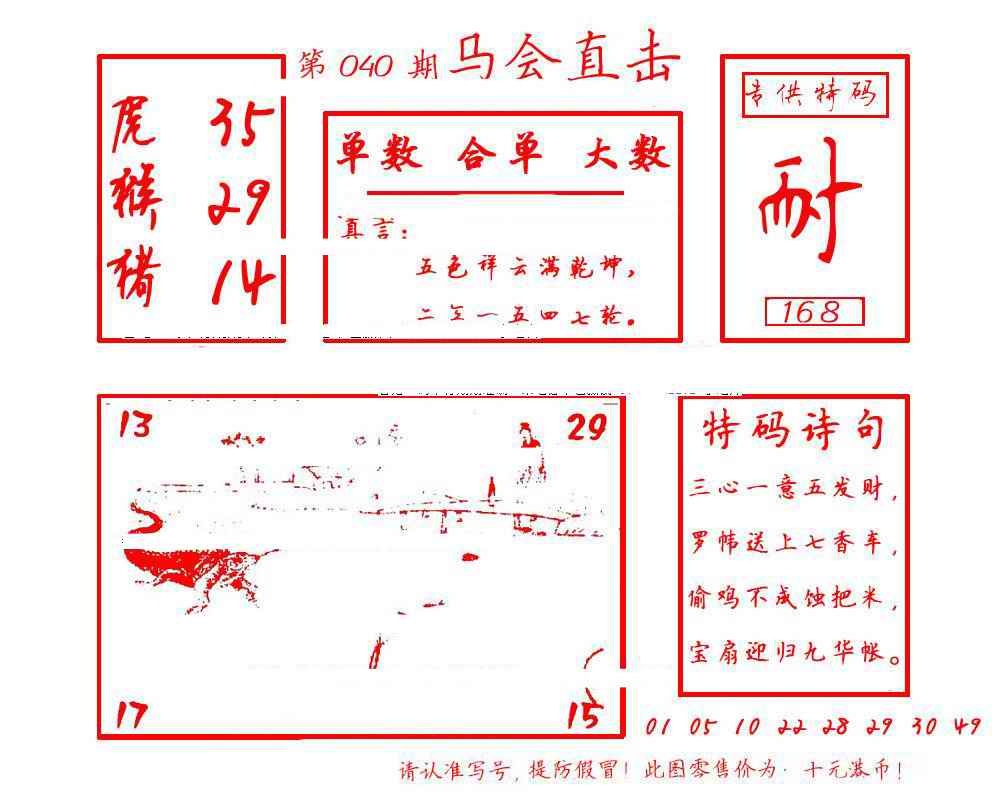 第 040 期 马会直击
虎 35
猴 29
猪 14
单数 合单 大数
真言：
五色祥云满乾坤，
二三一五四七轮。
专供特码
耐
168
13 29
17 15
特码诗句
三心一意五发财，
罗帏送上七香车，
偷鸡不成蚀把米，
宝扇迎归九华帐。
01 05 10 22 28 29 30 49
请认准写号，提防假冒！此图零售价为·十元港币！